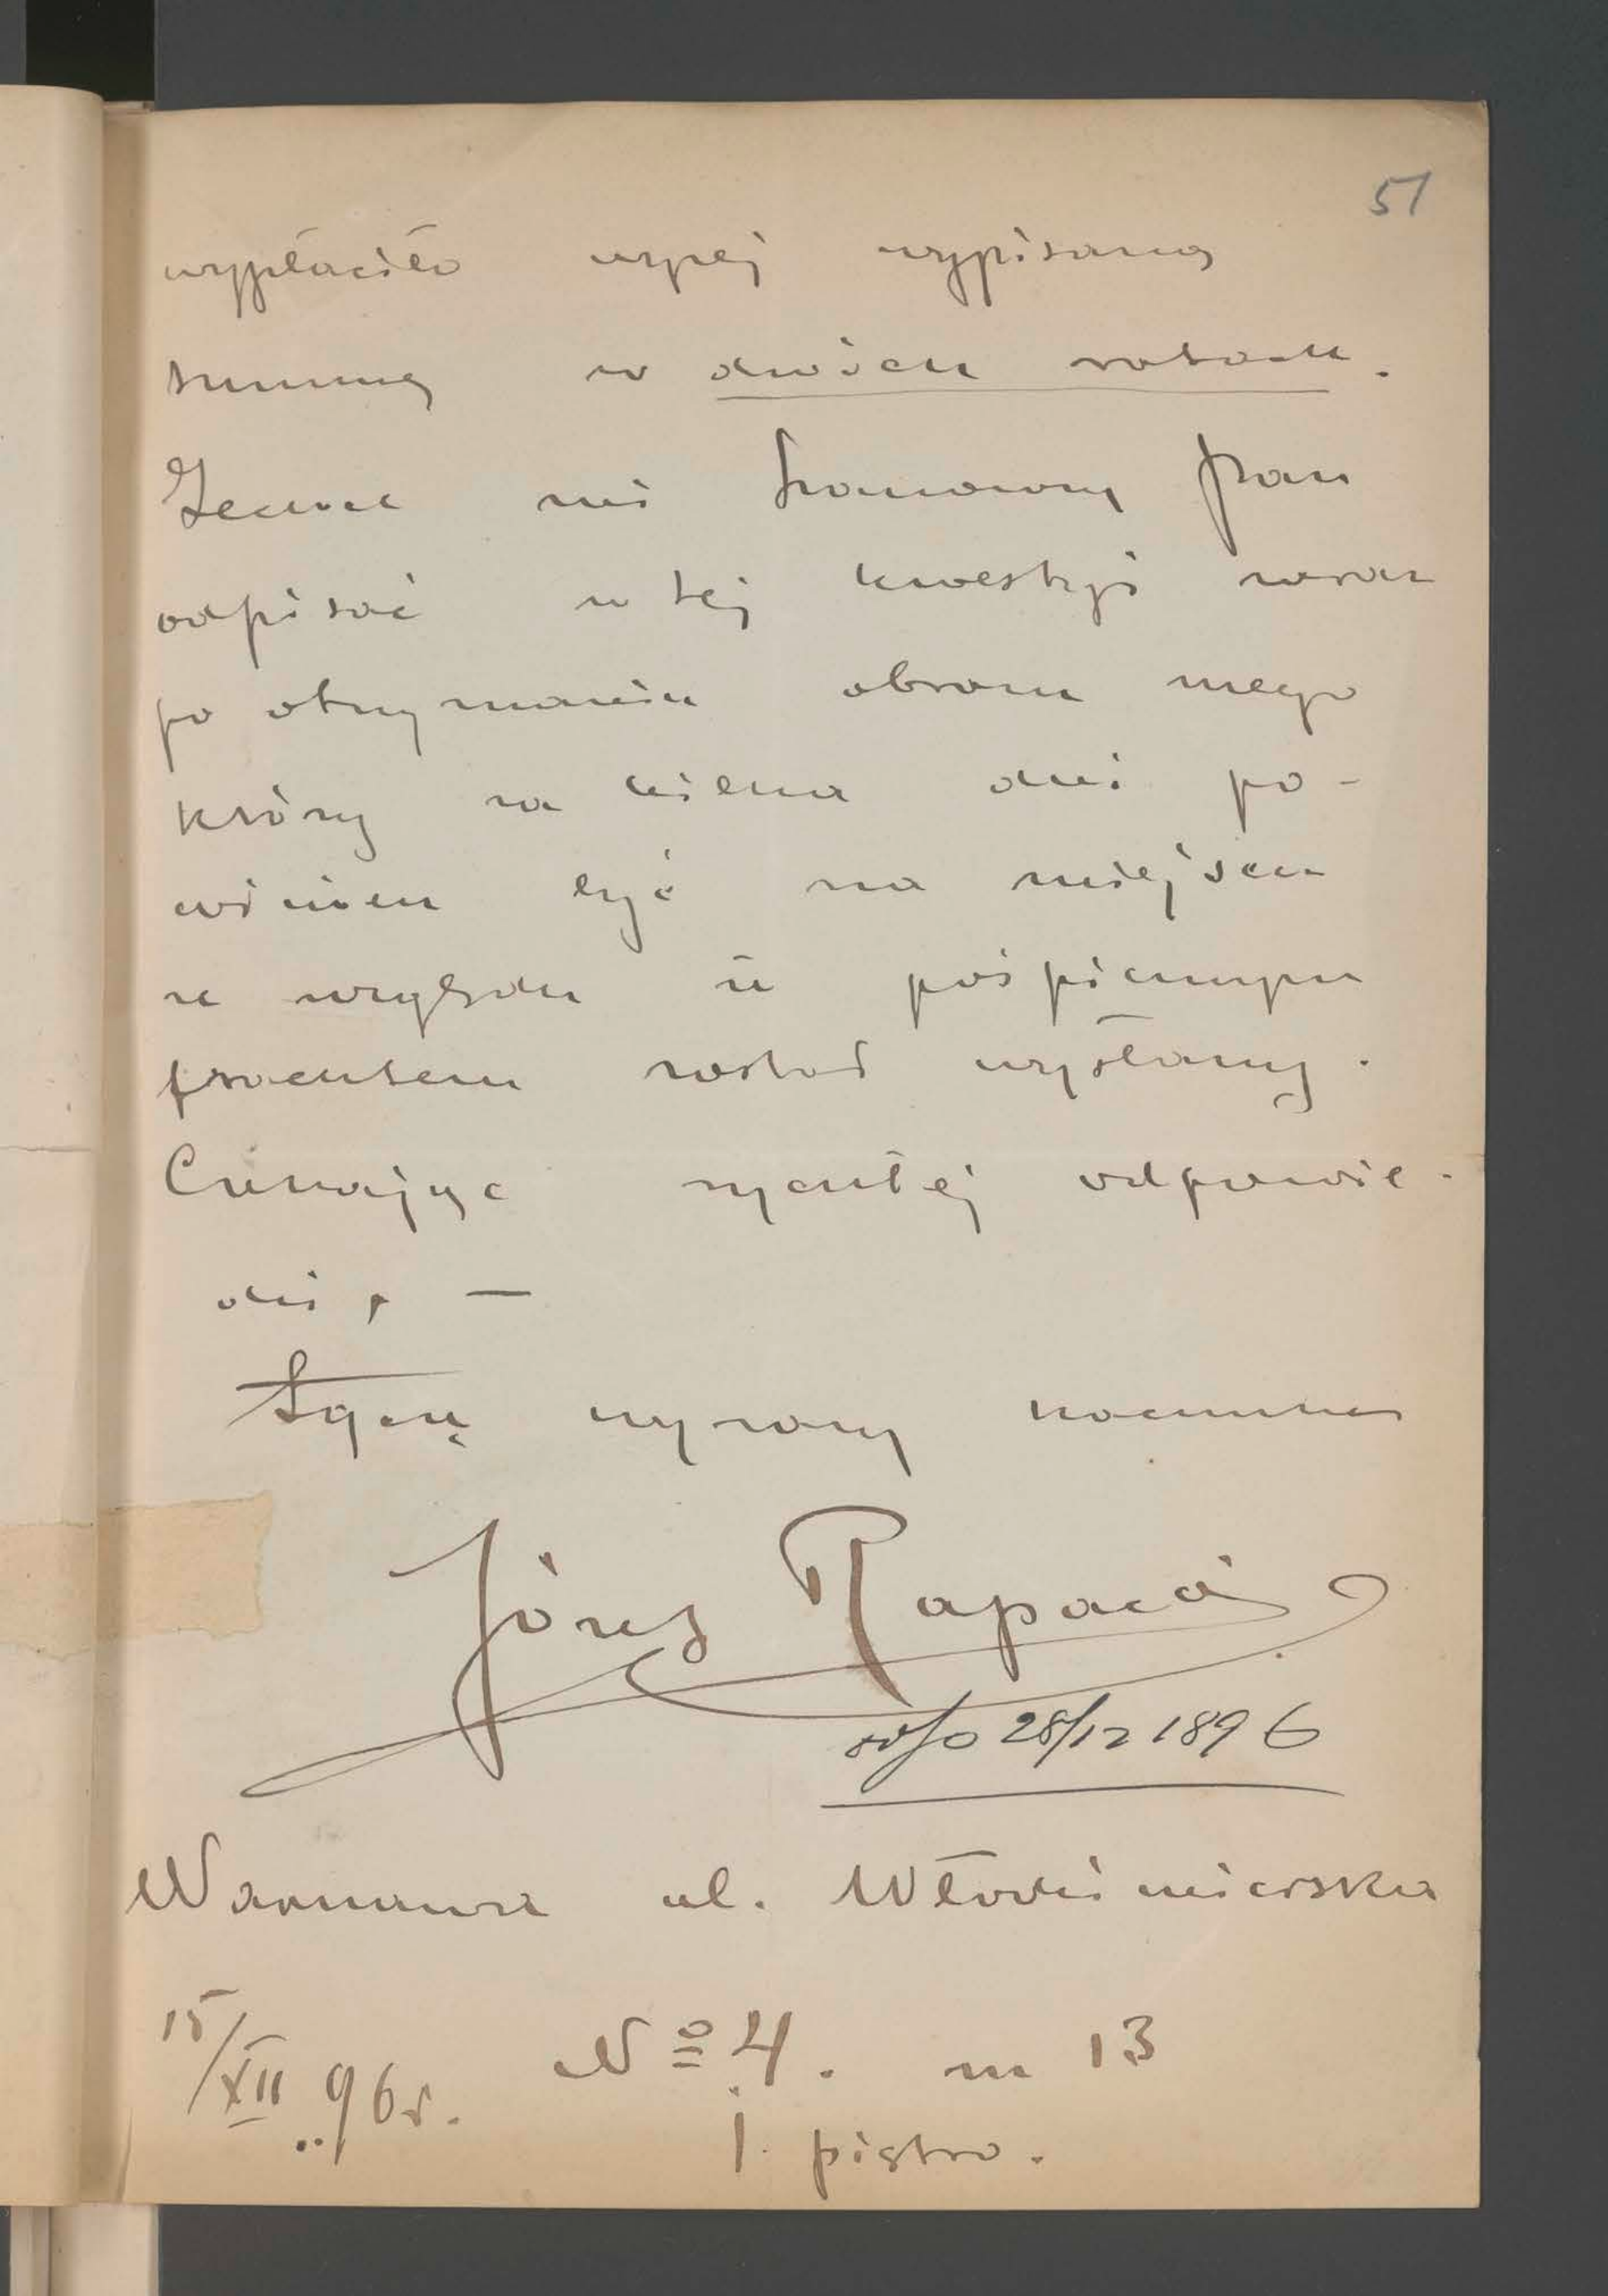 51
wypłaciło wyżej wypisaną
summę w dwóch ratach.
Zechce mi Szanowny Pan
odpisać w tej kwestyi zaraz
po otrzymaniu obrazu mego
który za kilka dni po-
winien być na miejscu
ze względu iż pośpiesznym
frachtem został wysłany.
Czekając rychłej odpowie-
dzi, —
Łączę wyrazy szacunku
Józef Rapacki
odp 28/12 1896
Warszawa ul. Włodzimierska
15/XII 96 r. № 4. m 13
1. piętro.